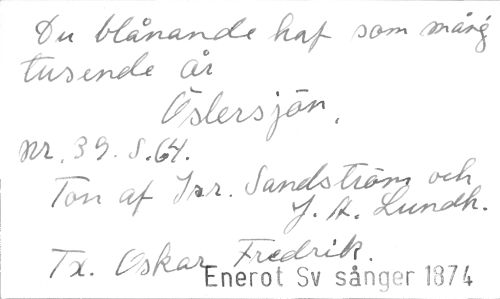 Du blånande haf som mång
tusende år
Östersjön.
Nr. 39. S. 64.
Ton af Isr. Sandström och
J. A. Lundh.
Tx. Oskar Fredrik.
Enerot Sv sånger 1874